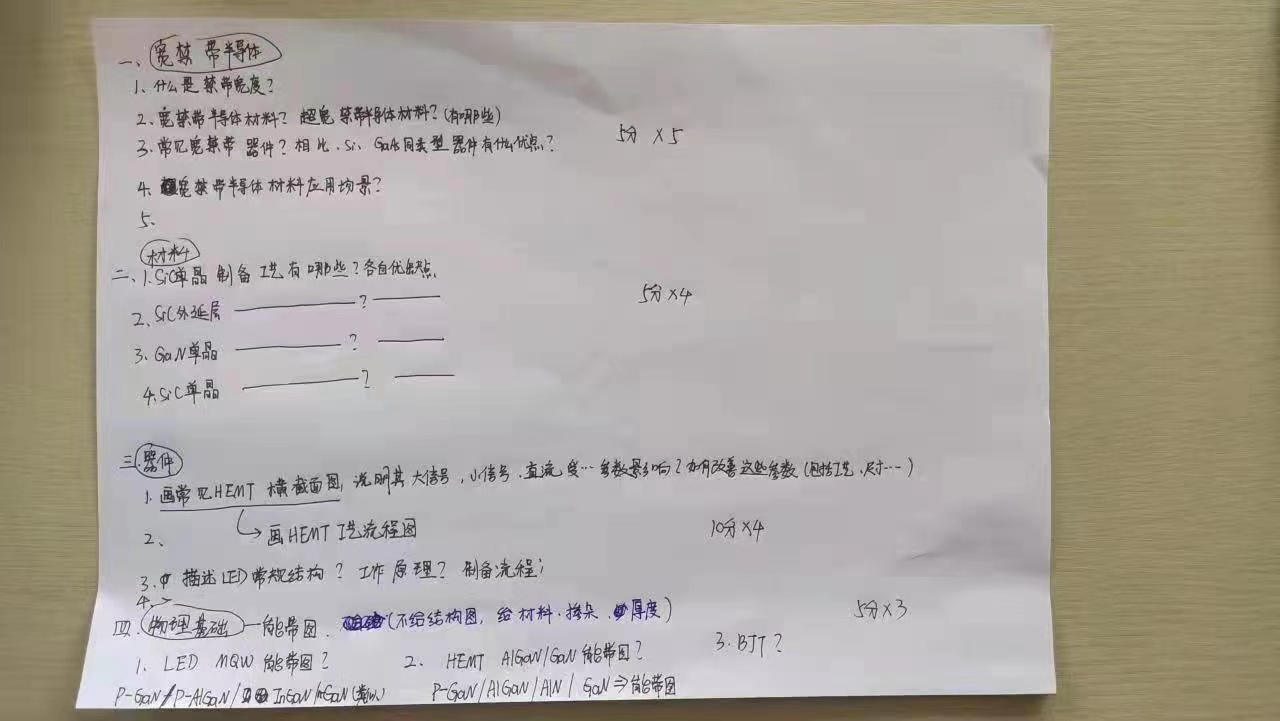 一、宽禁带半导体
1、什么是禁带宽度？
2、宽禁带半导体材料？超宽禁带半导体材料？(有哪些)
3、常见宽禁带器件？相比、Si、GaAs同类型器件有什么优点？
5分 ×5
4、宽禁带半导体材料应用场景？
5、
材料
二、1、SiC单晶制备工艺有哪些？各自优缺点
2、SiC外延层 ——— ？ ———
5分 ×4
3、GaN单晶 ——— ？ ———
4、SiC单晶 ——— ？ ———
三、器件
1、画常见HEMT横截面图，说明其大信号，小信号、直流 … 参数影响？如何改善这些参数(包括工艺、尺寸…)
→画HEMT工艺流程图
2、
10分×4
3、描述LED常规结构？工作原理？制备流程；
4、
四、物理基础—能带图、(不给结构图，给材料、掺杂、厚度)
5分×3
1、LED MQW能带图？ 2、HEMT AlGaN/GaN能带图？ 3、BJT？
P-GaN/P-AlGaN/ InGaN/nGaN P-GaN/AlGaN/AlN/GaN⇒能带图